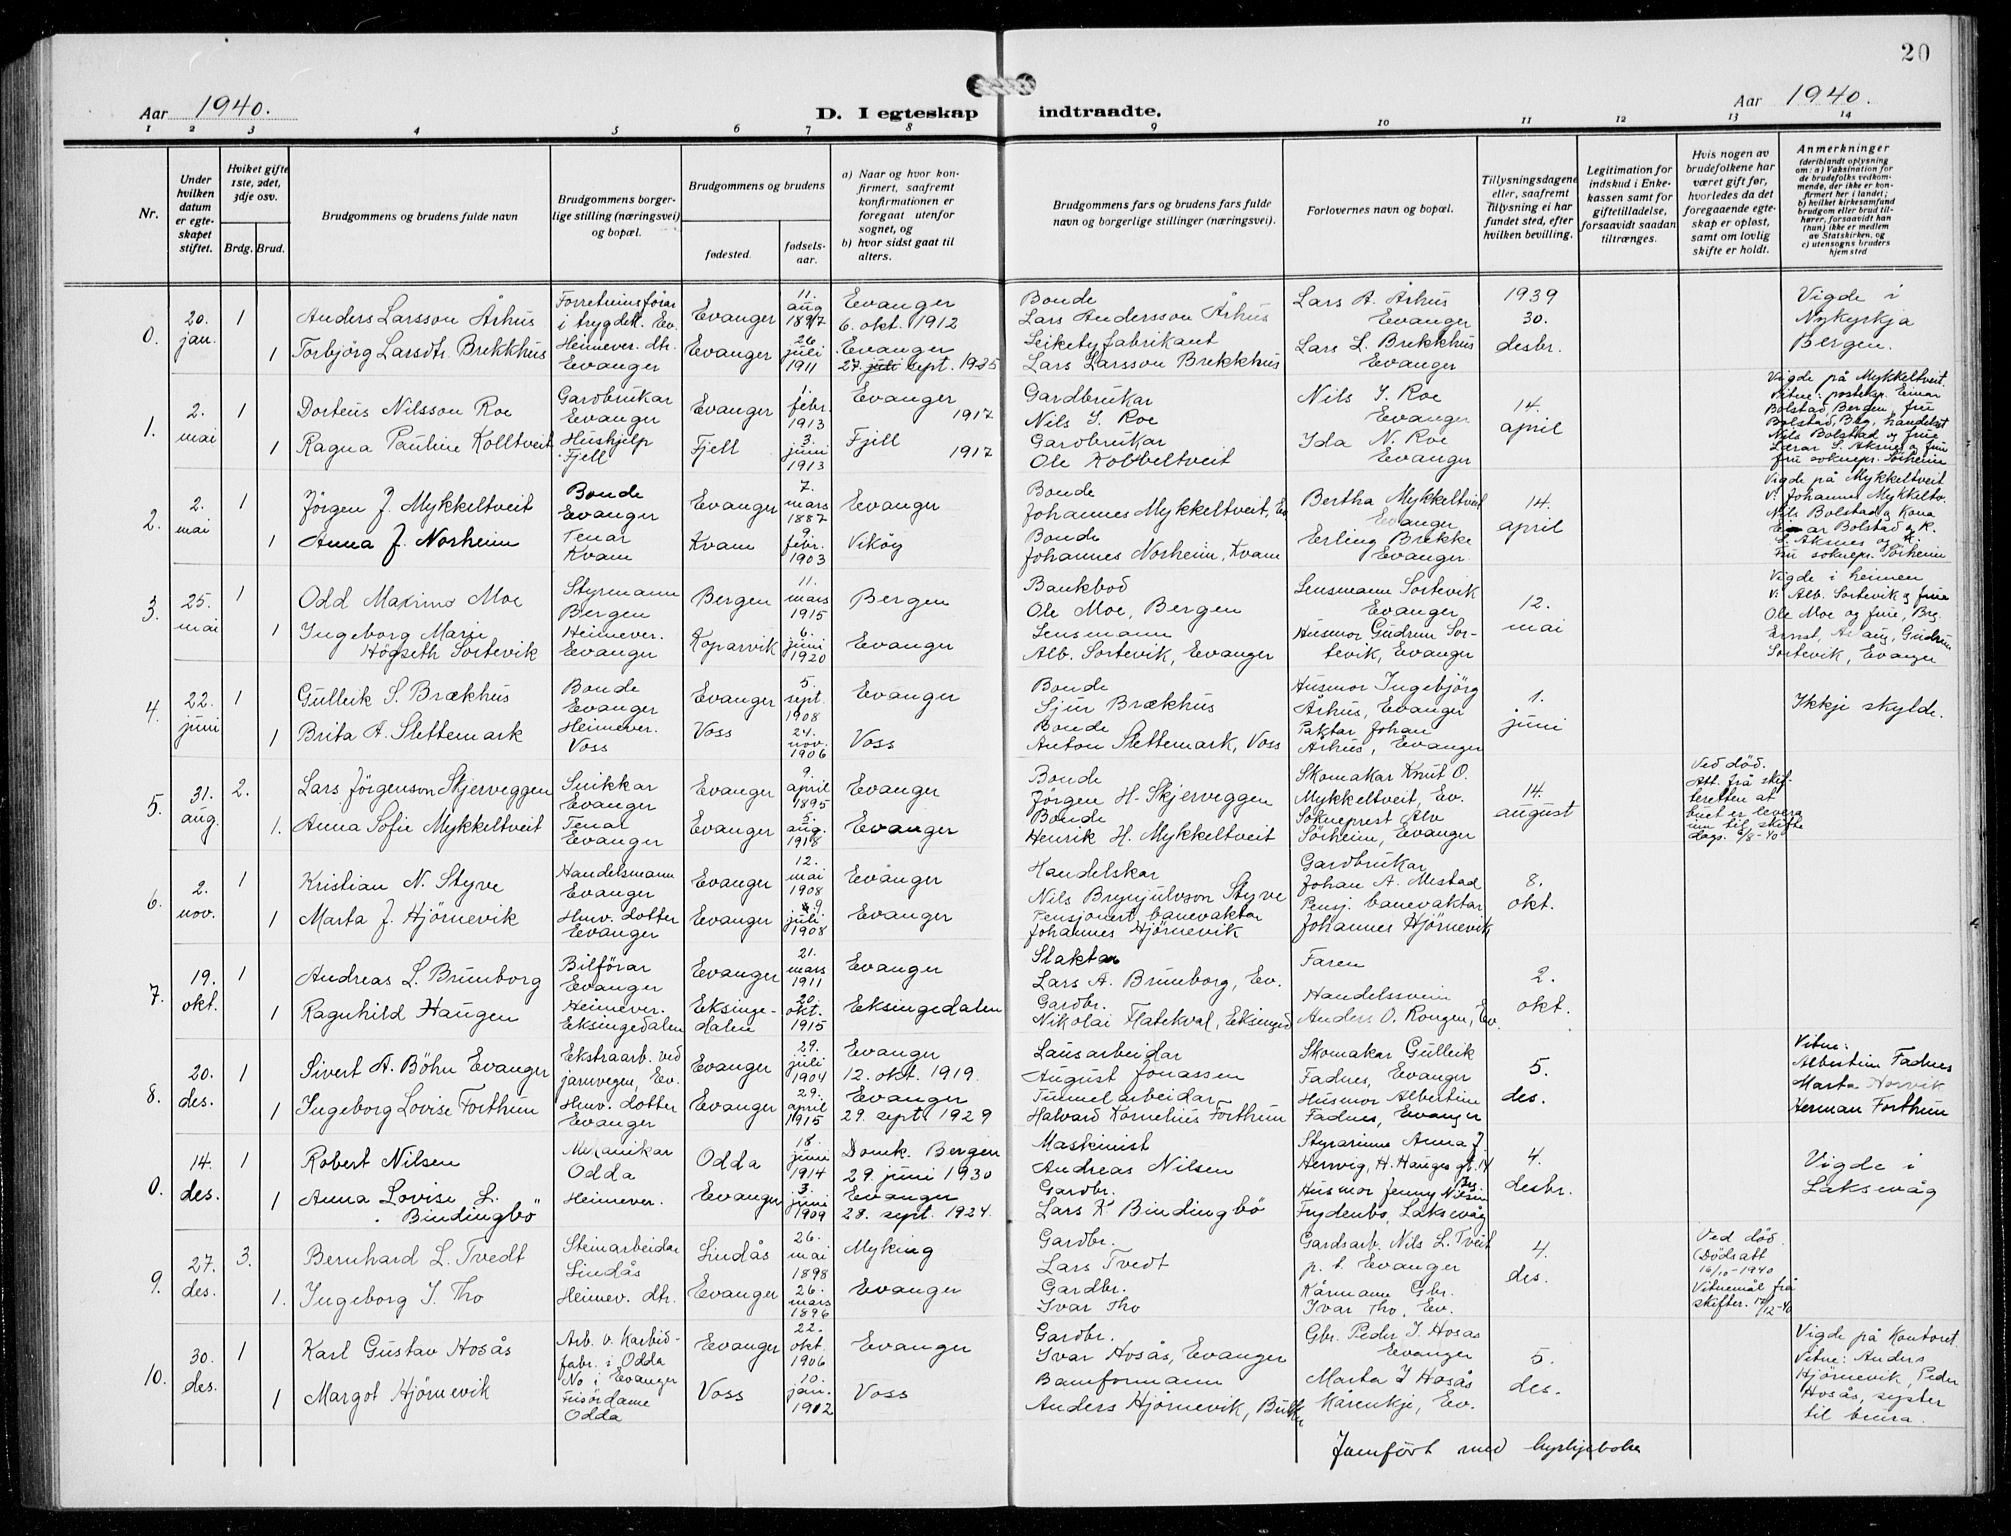 20
Aar 1940.
D. I egteskap indtraadte.
Aar 1940.
1 2 3 4 5 6 7 8 9 10 11 12 13 14
Nr.
Under hvilken datum er egteskapet stiftet.
Hviket gifte 1ste, 2det, 3dje osv.
Brdg. Brud.
Brudgommens og brudens fulde navn
Brudgommens borgerlige stilling (næringsvei) og bopæl.
Brudgommens og brudens
fødested.
fødselsaar.
a) Naar og hvor konfirmert, saafremt konfirmationen er foregaat utenfor sognet, og
b) hvor sidst gaat til alters.
Brudgommens fars og brudens fars fulde navn og borgerlige stillinger (næringsvei).
Forlovernes navn og bopæl.
Tillysningsdagene eller, saafremt tillysning ei har fundet sted, efter hvilken bevilling.
Legitimation for indskud i Enkekassen samt for giftetilladelse, forsaavidt saadan tiltrænges.
Hvis nogen av brudefolkene har været gift før, hvorledes da det foregaaende egteskap er opløst, samt om lovlig skifte er holdt.
Anmerkninger
(deriblandt oplysning om: a) Vaksination for de brudefolks vedkommende, der ikke er konfirmert her i landet; b) hvilket kirkesamfund brudgom eller brud tilhører, forsaavidt han (hun) ikke er medlem av Statskirken, og c) utensogns bruders hjemsted
0. 20. jan. 1 Anders Larsson Århus
i trygdek. Ev. Evanger 11. aug 1897 Evanger 6. okt. 1912
Bonde Lars Andersson Århus
Lars A. Århus Evanger
1939 30. desbr.
Vigde i Nykyrkja Bergen.
1 Torbjörg Larsdtr. Brekkhus
Heimever. dtr. Evanger Evanger 26 juli 1911 Evanger 27. juli sept. 1925
fabrikant Lars Larsson Brekkhus
Lars L. Brekkhus Evanger
1. 2. mai 1 Dorteus Nilsson Roe
Gardbrukar Evanger Evanger 1. febr. 1913 Evanger 1917
Gardbrukar Nils I. Roe
Nils I. Roe Evanger
14. april
Vigde på Mykkeltveit.
Vitne: posteksp. Einar
Bolstad, Bergen, fru
Bolstad, Brg, handelst
Nils Bolstad og frue
Lærar L. Aksnes og frue
fru soknepr. Sörheim
1 Ragna Pauline Kolltveit
Hushjelp Fjell Fjell 3. juni 1913 Fjell 1917
Gardbrukar Ole Kolbbeltveit
Ida N. Roe Evanger
2. 2. mai 1 Jörgen J. Mykkeltveit
Bonde Evanger Evanger 7. mars 1887 Evanger
Bonde Johannes Mykkeltveit, Ev
Bertha Mykkeltveit Evanger
14. april
Vigde på Mykkeltveit
V. Johannes Mykkeltv.
Nils Bolstad og Kona
Einar Bolstad og K.
L. Aksnes og K.
Fru soknepr. Sörheim
1 Anna J. Norheim
Tenar Kvam Kvam 9 febr. 1903 Vikøy
Bonde Johannes Norheim, Kvam
Erling Brekke Evanger
3. 25. mai 1 Odd Maximo Moe
Styrmann Bergen Bergen 11. mars 1915 Bergen
Bankbod Ole Moe, Bergen
Lensmann Sortevik Evanger
12. mai
Vigde i heimen
V. Alb. Sortevik og frue
Ole Moe og frue, Brg.
Ernst, Aslaug, Gudrun
Sortevik, Evanger
1 Ingeborg Marie Högseth Sortevik
Heimever. Evanger Koparvik 6. juni 1920 Evanger
Lensmann Alb. Sortevik, Evanger
Husmor Gudrun Sortevik, Evanger
4. 22. juni 1 Gulleik S. Brækhus
Bonde Evanger Evanger 5. sept. 1908 Evanger
Bonde Sjur Brækhus
Husmor Ingebjörg Århus, Evanger
1. juni
Ikkje skylde.
1 Brita A. Slettemark
Heimever. Voss Voss 24. nov. 1906 Voss
Bonde Anton Slettemark, Voss
Paktar Johan Århus, Evanger
5. 31. aug. 2. Lars Jörgenson Skjerveggen
Snikkar Evanger Evanger 9. april 1895 Evanger
Bonde Jørgen H. Skjerveggen
Skomakar Knut O. Mykkeltveit, Ev.
14. august
Ved död.
Att. frå skifteretten at
buet er levera
inn til skifte
dags. 6/8-40
1. Anna Sofie Mykkeltveit
Tenar Evanger Evanger 5. aug. 1918 Evanger
Bonde Henrik H. Mykkeltveit
Sokneprest Alv Sörheim, Evanger
6. 2. nov. 1 Kristian N. Styve
Handelsmann Evanger Evanger 12. mai 1908 Evanger
Handelskar Nils Brynjulvson Styve
Gardbrukar Johan A. Mestad
8. okt.
1 Marta J. Hjörnevik
Hmv. dotter Evanger Evanger 9 juli 1908 Evanger
Pensjonert banevaktar Johannes Hjørnevik
Pensj. banevaktar Johannes Hjørnevik
7. 19. okt. 1 Andreas L. Brunborg
Bilförar Evanger Evanger 21. mars 1911 Evanger
Slaktar Lars A. Brunborg, Ev.
Faren
2. okt.
1 Ragnhild Haugen
Heimever. Eksingedalen Eksingedalen 20. okt. 1915 Eksingedalen
Gardbr. Nikolai Flatekval, Eksinged
Handelssvein Anders O. Rongen, Ev.
8. 20. des. 1 Sivert A. Böhn Evanger
Ekstraarb. ved jarnvegen, Ev. Evanger 29. juli 1904 Evanger 12. okt. 1919.
Lausarbeidar August Jonassen
Skomakar Gulleik Fadnes, Evanger
5. des.
Vitne:
Albertine Fadnes
Marta Norvik
Herman Forthun
1 Ingeborg Lovise Forthun
Hmv. dotter Evanger Evanger 29. april 1915 Evanger 29. sept. 1929
Tunnelarbeidar Halvard Kornelius Forthun
Husmor Albertine Fadnes, Evanger
0. 14. des. 1 Robert Nilsen
Mekanikar Odda Odda 18. juni 1914 Domk. Bergen 29. juni 1930
Maskinist Andreas Nilsen
Styrarinne Anna J. Herwig, H. Hauges gt. 14 Brg.
4. desbr.
Vigde i Laksevåg
1 Anna Lovise L. Bindingbö
Heimever. Evanger 3. juni 1909 Evanger 28. sept. 1924.
Gardbr. Lars K. Bindingbö
Husmor Jenny Nilsen Frydenbo, Laksevåg
9. 27. des. 3. Bernhard L. Tvedt
Steinarbeidar Lindås Lindås 26. mai 1898 Myking
Gardbr. Lars Tvedt
Gardsarb. Nils L. Tveit p. t. Evanger
4. des.
Ved död.
(Dödsatt
16/10-1940
Vitnemål frå
skifter. 17/12-40
1. Ingeborg I. Tho
Heimev. dtr. Evanger 26. mars 1896 Evanger
Gardbr. Ivar Tho
Kårmann Gbr. Ivar Tho, Ev.
10. 30. des. 1 Karl Gustav Hosås
Arb. v. Karbidfabr. i Odda No i Evanger Evanger 22. okt. 1906 Evanger
Gardbr. Ivar Hosås, Evanger
Gbr. Peder I. Hosås Evanger
5. des.
Vigde på Kontoret.
Vitne: Anders
Hjörnevik, Peder
Hosås, syster
til brura.
1 Margot Hjörnevik
Frisördame Odda Voss 10. jan. 1912 Voss
Baneformann Anders Hjörnevik, Bulken
Marta I Hosås Kårenkje, Ev.
Jamfört med lysingboka